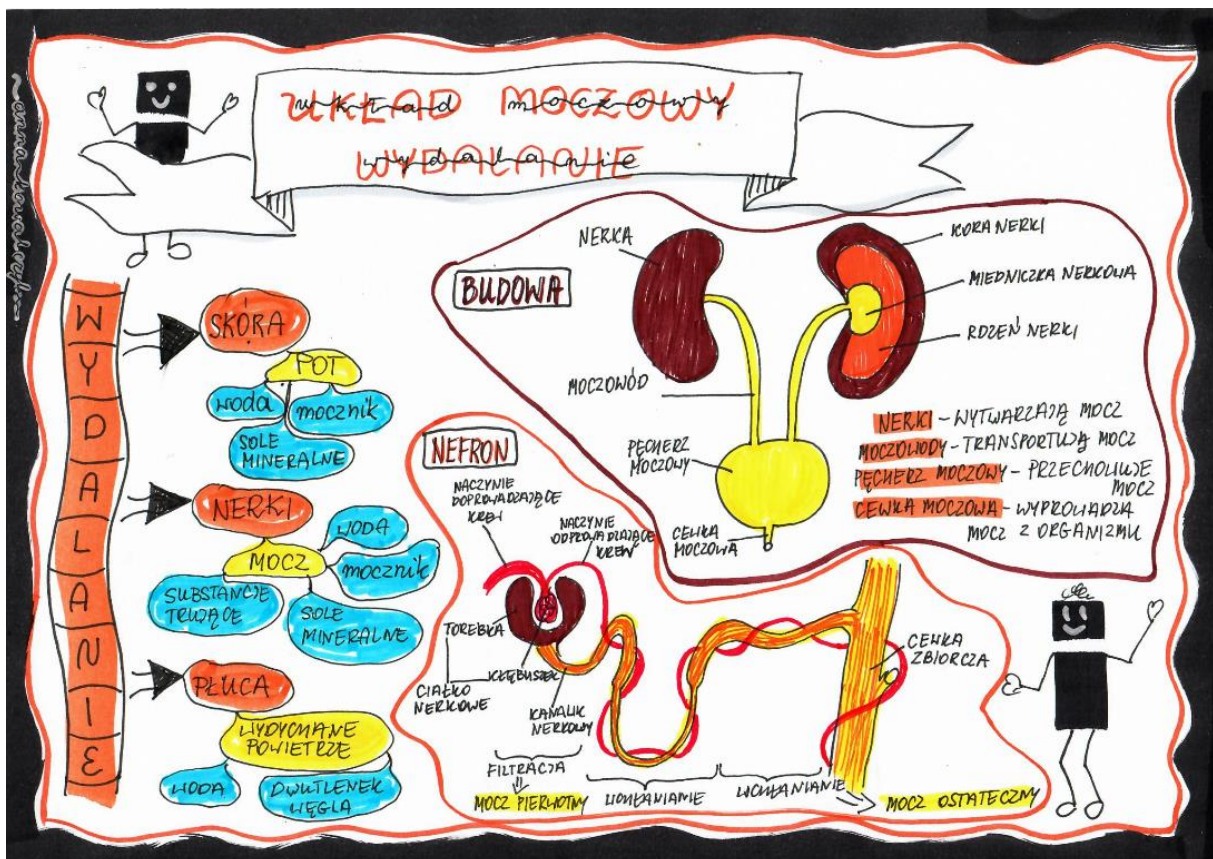 UKŁAD MOCZOWY
WYDALANIE
WYDALANIE
SKÓRA
POT
woda
mocznik
SOLE
MINERALNE
NERKI
MOCZ
WODA
mocznik
SUBSTANCJE
TRUJĄCE
SOLE
MINERALNE
PŁUCA
WYDYCHANE
POWIETRZE
WODA
DWUTLENEK
WĘGLA
BUDOWA
NERKA
KORA NERKI
MIEDNICZKA NERKOWA
RDZEŃ NERKI
MOCZOWÓD
PĘCHERZ
MOCZOWY
CEWKA
MOCZOWA
NERKI - WYTWARZAJĄ MOCZ
MOCZOWODY - TRANSPORTUJĄ MOCZ
PĘCHERZ MOCZOWY - PRZECHOWUJE
MOCZ
CEWKA MOCZOWA - WYPROWADZA
MOCZ Z ORGANIZMU
NEFRON
NACZYNIE
DOPROWADZAJĄCE
KREW
NACZYNIE
ODPROWADZAJĄCE
KREW
TOREBKA
KŁĘBUSZEK
CIAŁKO
NERKOWE
KANALIK
NERKOWY
CEWKA
ZBIORCZA
FILTRACJA
MOCZ PIERWOTNY
WCHŁANIANIE
WCHŁANIANIE
MOCZ OSTATECZNY